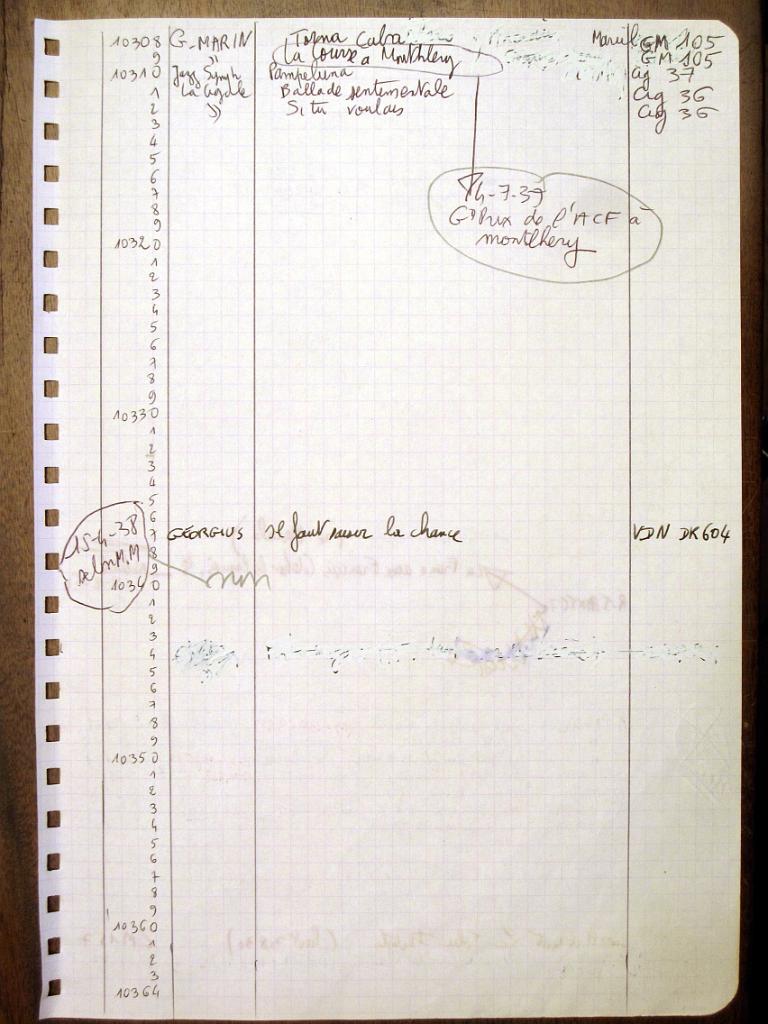 10308 G. MARIN Toma Cuba GM 105
9 " La Course à Montlhery GM 105
10310 Jazz Symph Pampeluna Cig 37
1 La Cigale Ballade sentimentale Cig 36
2 " Si tu voulais Cig 36
3
4
5
6
7
8
9
4-7-37
Gd Prix de l'ACF à
montlhery
10320
1
2
3
4
5
6
7
8
9
10330
1
2
3
4
5
6
7 GEORGIUS Il faut saisir la chance VDN DK604
8
9
10340
15-4-38
selon M.M
non
1
2
3
4
5
6
7
8
9
10350
1
2
3
4
5
6
7
8
9
10360
1
2
3
10364